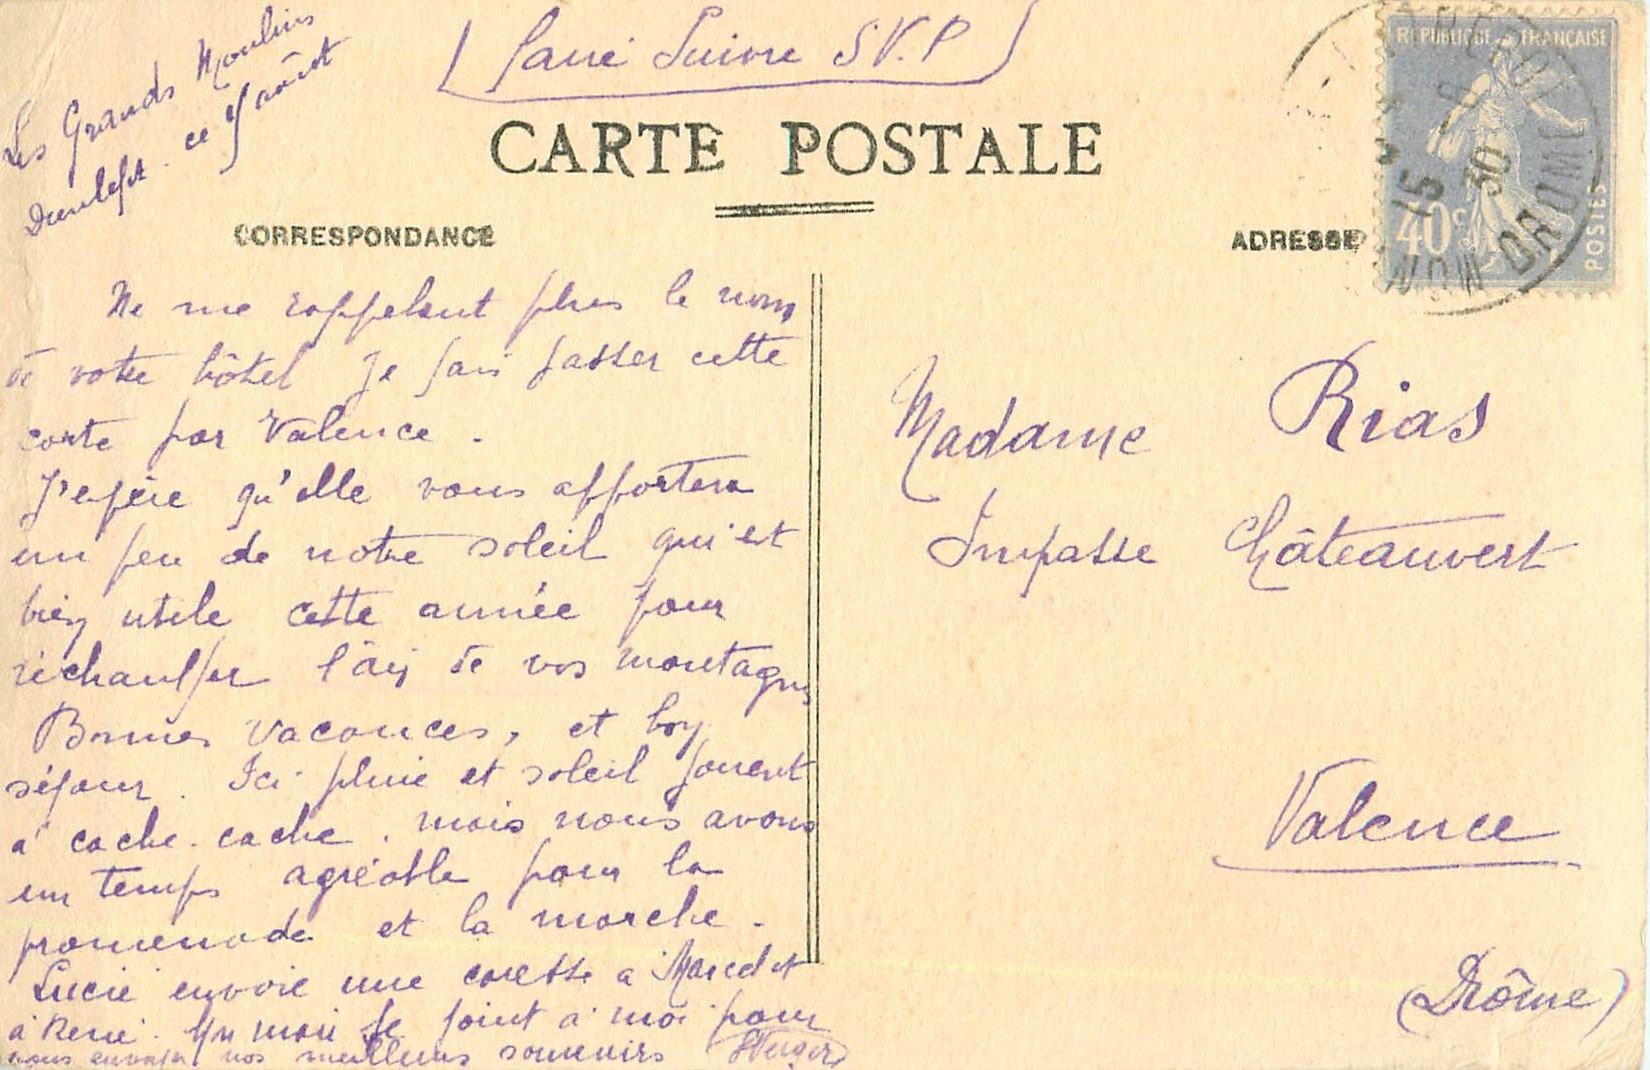 Les Grands Moulins
Dieulefit ce 7 août
(Faire Suivre S.V.P)
CARTE POSTALE
CORRESPONDANCE
ADRESSE
REPUBLIQUE FRANÇAISE
40c
POSTES
15
30
DROME
Ne me rappelant plus le nom
de votre hôtel je fais passer cette
carte par Valence.
J'espère qu'elle vous apportera
un peu de notre soleil qui est
bien utile cette année pour
réchauffer l'air de vos montagnes
Bonnes vacances, et bon
séjour. Ici pluie et soleil jouent
à cache-cache. mais nous avons
un temps agréable pour la
promenade et la marche.
Lucie envoie une caresse à Marcel et
à René. Mon mari se joint à moi pour
vous envoyer nos meilleurs souvenirs
Madame Rias
Impasse Châteauvert
Valence
(Drôme)